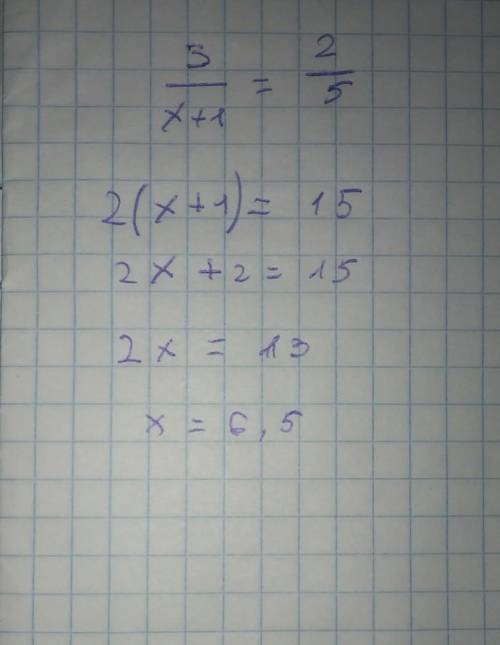 3/(x+1) = 2/5
2(x+1) = 15
2x + 2 = 15
2x = 13
x = 6,5